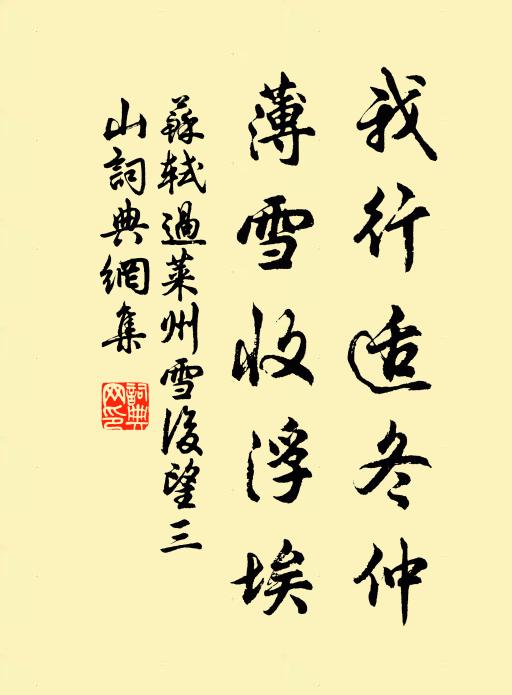 我行适冬仲
薄雪收浮埃
蘇軾過萊州雪後望三
山詞典網集
詞典
网印